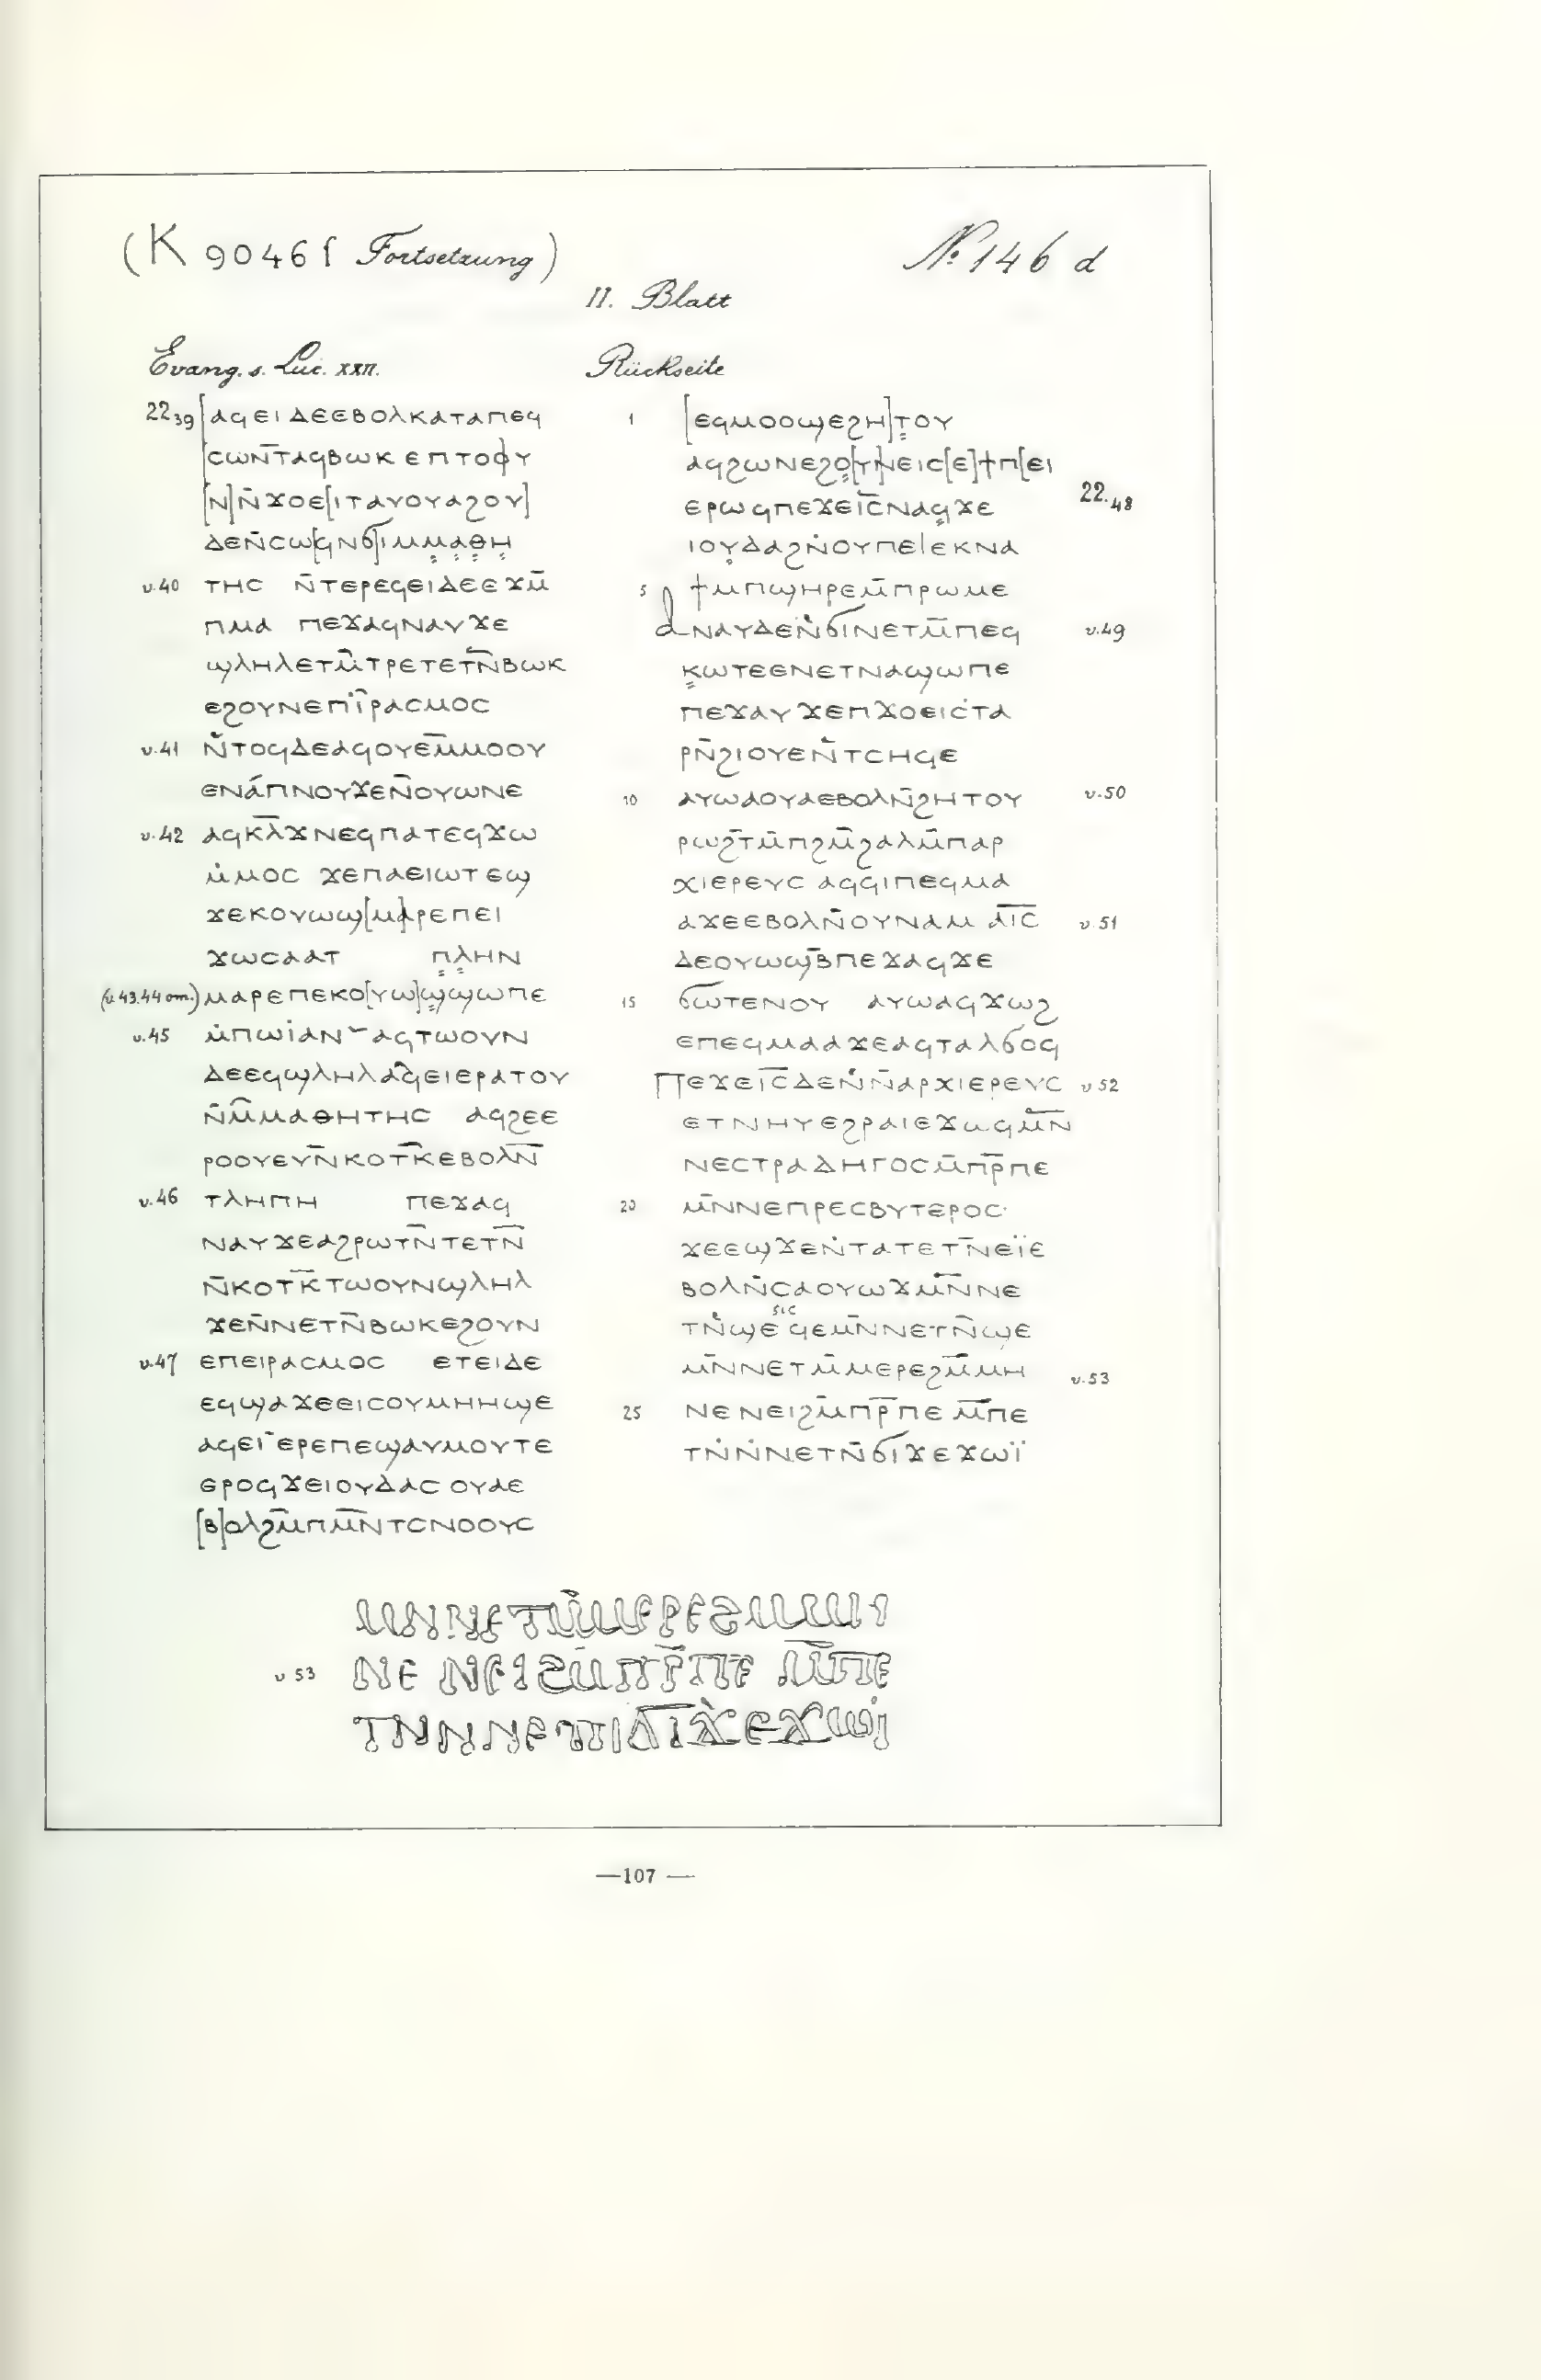 (K 9046 f Fortsetzung)
№ 146 d
II. Blatt
Evang. s. Luc. XXII.
Rückseite
22 39 [ⲁϥⲉⲓⲇⲉⲉⲃⲟⲗⲕⲁⲧⲁⲡⲉϥ
[ⲥⲱⲛ̄ⲧⲁϥⲃⲱⲕⲉⲡⲧⲟⲟ]ⲩ
[ⲛ]ⲛ̄ϫⲟⲉ[ⲓⲧⲁⲩⲟⲩⲁϩⲟⲩ]
ⲇⲉⲛ̄ⲥⲱ[ϥⲛϭ]ⲓⲙⲙ̣ⲁ̣ⲑ̣ⲏ̣
v.40 ⲧⲏⲥ ⲛ̄ⲧⲉⲣⲉϥⲉⲓⲇⲉⲉϫⲙ̄
ⲡⲙⲁ ⲡⲉϫⲁϥⲛⲁⲩϫⲉ
ϣⲗⲏⲗⲉⲧⲙ̄ⲧⲣⲉⲧⲉⲧⲛ̄ⲃⲱⲕ
ⲉϩⲟⲩⲛⲉⲡⲓ̈ⲣⲁⲥⲙⲟⲥ
v.41 ⲛ̄ⲧⲟϥⲇⲉⲁϥⲟⲩⲉⲙ̄ⲙⲟⲟⲩ
ⲉⲛⲁ́ⲡⲛⲟⲩϫⲉⲛ̄ⲟⲩⲱⲛⲉ
v.42 ⲁϥⲕⲗ̄ϫⲛⲉϥⲡⲁⲧⲉϥϫⲱ
ⲙ̇ⲙⲟⲥ ϫⲉⲡⲁⲉⲓⲱⲧ ⲉϣ
ϫⲉⲕⲟⲩⲱϣ[ⲙⲁ]ⲣⲉⲡⲉⲓ
ϫⲱⲥⲁⲁⲧ ⲡ̣ⲗ̣ⲏⲛ
(v.43.44 om.) ⲙⲁⲣⲉⲡⲉⲕⲟ[ⲩⲱ]ϣ̣ϣⲱⲡⲉ
v.45 ⲙ̇ⲡⲱⲓ̈ⲁⲛ ⲁϥⲧⲱⲟⲩⲛ
ⲇⲉⲉϥϣⲗⲏⲗⲁϥⲉⲓⲉⲣⲁⲧⲟⲩ
ⲛ̄ⲙ̄ⲙⲁⲑⲏⲧⲏⲥ ⲁϥϩⲉⲉ
ⲣⲟⲟⲩⲉⲩⲛ̄ⲕⲟⲧⲕ̄ⲉⲃⲟⲗⲛ̄
v.46 ⲧⲗⲏⲡⲏ ⲡⲉϫⲁϥ
ⲛⲁⲩϫⲉⲁϩⲣⲱⲧⲛ̄ⲧⲉⲧⲛ̄
ⲛ̄ⲕⲟⲧⲕ̄ⲧⲱⲟⲩⲛϣⲗⲏⲗ
ϫⲉⲛ̄ⲛⲉⲧⲛ̄ⲃⲱⲕⲉϩⲟⲩⲛ
v.47 ⲉⲡⲉⲓⲣⲁⲥⲙⲟⲥ ⲉⲧⲉⲓⲇⲉ
ⲉϥϣⲁϫⲉⲉⲓⲥⲟⲩⲙⲏⲏϣⲉ
ⲁϥⲉⲓ ⲉⲣⲉⲡⲉϣⲁⲩⲙⲟⲩⲧⲉ
ⲉⲣⲟϥϫⲉⲓⲟⲩⲇⲁⲥ ⲟⲩⲁⲉ
[ⲃ]ⲟⲗϩⲙ̄ⲡⲙⲛ̄ⲧⲥⲛⲟⲟⲩⲥ
1 [ⲉϥⲙⲟⲟϣⲉϩⲏ]ⲧ̣ⲟⲩ
ⲁϥϩⲱⲛⲉϩⲟ̣[ⲩ]ⲛⲉⲓⲥ[ⲉ]ϯⲡ[ⲉⲓ
ⲉⲣⲱϥⲡⲉϫⲉⲓ̄ⲥ̄ⲛⲁϥ̣ϫⲉ 22.48
ⲓⲟⲩ̣ⲇⲁϩⲛ̇ⲟⲩⲡⲉⲓⲉⲕⲛⲁ
5 ϯⲙⲡϣⲏⲣⲉⲙ̄ⲡⲣⲱⲙⲉ
ⲁⲛⲁⲩⲇⲉⲛ̇ϭⲓⲛⲉⲧⲙ̄ⲡⲉϥ v.49
ⲕ̣ⲱⲧⲉⲉⲛⲉⲧⲛⲁϣⲱⲡⲉ
ⲡⲉϫⲁⲩϫⲉⲡϫⲟⲉⲓⲥⲧⲁ
ⲣⲛ̄ϩⲓⲟⲩⲉⲛ̄ⲧⲥⲏϥⲉ
10 ⲁⲩⲱⲁⲟⲩⲁⲉⲃⲟⲗⲛ̄ϩⲏⲧⲟⲩ v.50
ⲣⲱϩ̄ⲧⲙ̄ⲡϩⲙ̄ϩⲁⲗⲙ̄ⲡⲁⲣ
ⲭⲓⲉⲣⲉⲩⲥ ⲁϥϥⲓⲡⲉϥⲙⲁ
ⲁϫⲉⲉⲃⲟⲗⲛ̄ⲟⲩⲛⲁⲙ ⲁⲓ̄ⲥ̄ v.51
ⲇⲉⲟⲩⲱϣ̄ⲃⲡⲉϫⲁϥϫⲉ
15 ϭⲱⲧⲉⲛⲟⲩ ⲁⲩⲱⲁϥϫⲱϩ
ⲉⲡⲉϥⲙⲁⲁϫⲉⲁϥⲧⲁⲗϭⲟϥ
ⲡⲉϫⲉⲓ̄ⲥ̄ⲇⲉⲛ̇ⲛ̄ⲁⲣⲭⲓⲉⲣⲉⲩⲥ v.52
ⲉⲧⲛⲏⲩⲉϩⲣⲁⲓⲉϫⲱϥⲙⲛ̄
ⲛⲉⲥⲧⲣⲁⲇⲏⲅⲟⲥⲙ̄ⲡⲣ̄ⲡⲉ
20 ⲙⲛ̄ⲛⲉⲡⲣⲉⲥⲃⲩⲧⲉⲣⲟⲥ·
ϫⲉⲉϣϫⲉⲛ̇ⲧⲁⲧⲉⲧⲛ̄ⲉⲓ̈ⲉ
ⲃⲟⲗⲛ̄ⲥⲁⲟⲩⲱϫⲙⲛ̄ⲛⲉ
sic
ⲧⲛ̇ϣⲉ ϥⲉⲙⲛ̄ⲛⲉⲧⲛ̄ϣⲉ
ⲙⲛ̄ⲛⲉⲧⲙ̄ⲙⲉⲣⲉϩⲙ̄ⲙⲏ v.53
25 ⲛⲉⲛⲉⲓϩⲙ̄ⲡⲣ̄ⲡⲉ ⲙ̄ⲡⲉ
ⲧⲛ̇ⲛ̇ⲛⲉⲧⲛ̄ϭⲓϫⲉϫⲱⲓ̈
ⲙⲛⲛⲉⲧⲙ̄ⲙⲉⲣⲉϩⲙⲙⲏ
v 53 ⲛⲉ ⲛⲉⲓϩⲙ̄ⲡⲣ̄ⲡⲉ ⲙ̄ⲡⲉ
—107—